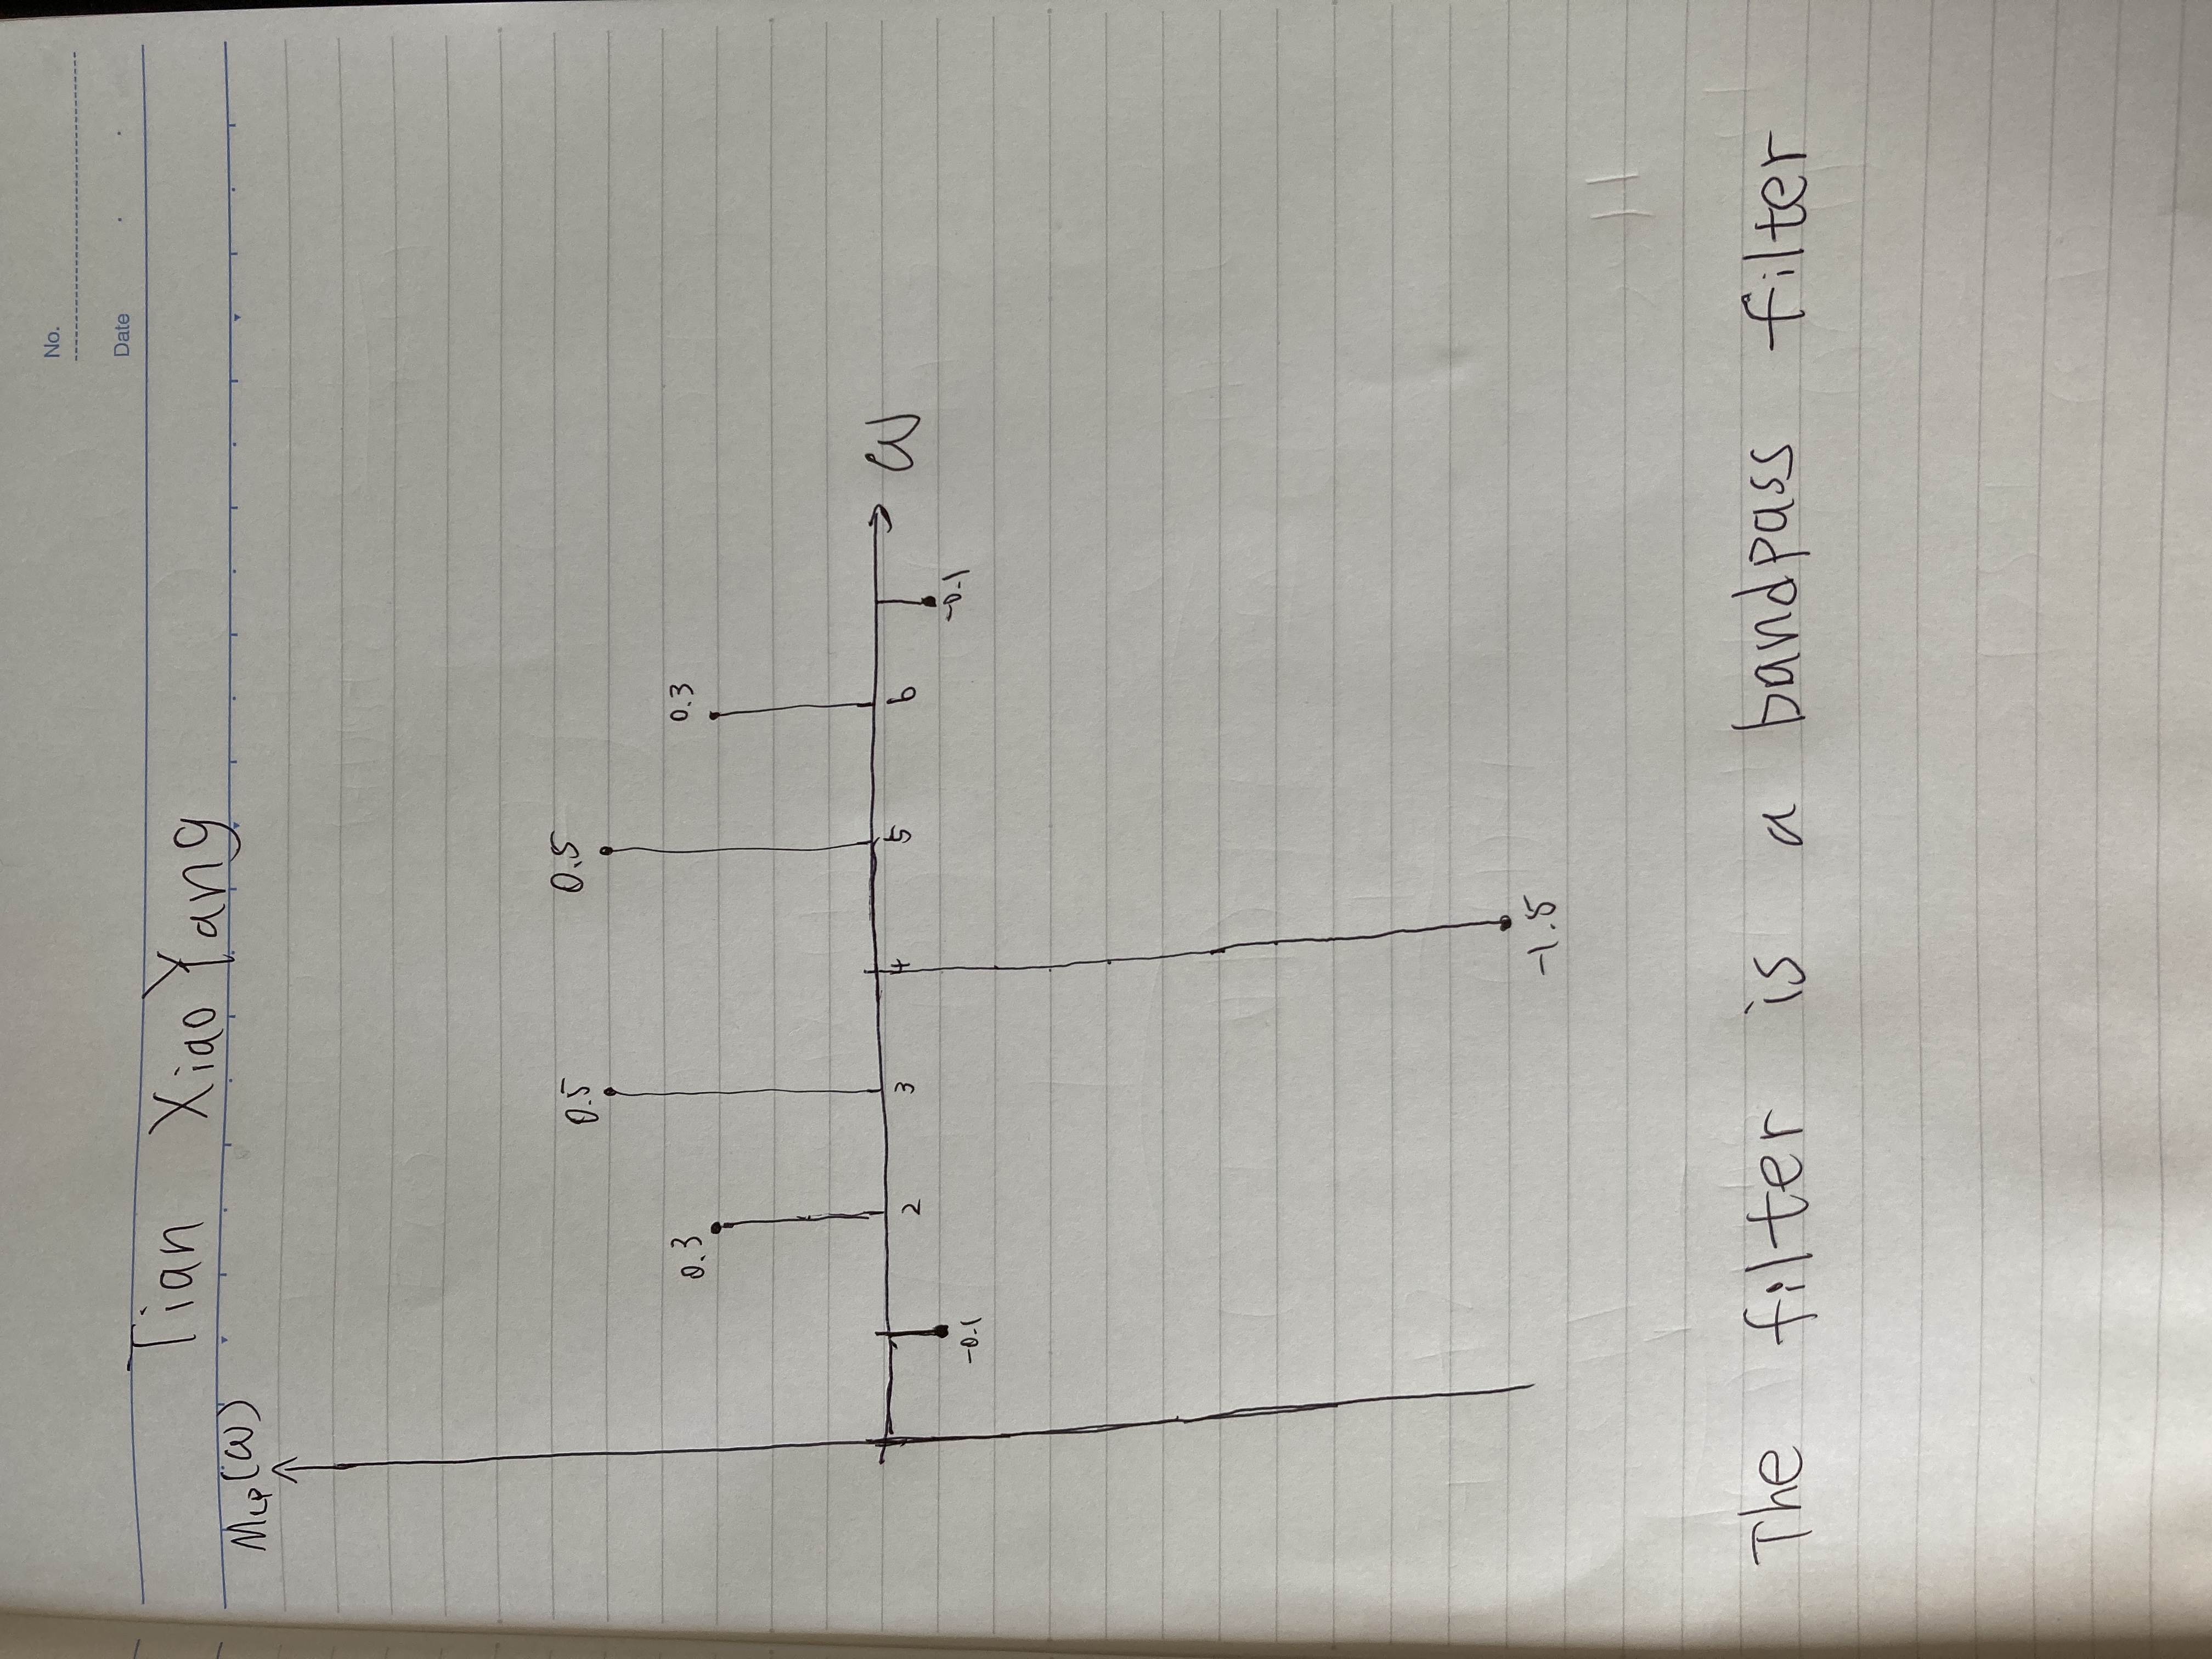 No.
Date
Tian XiaoYang
MLP(ω)
0.5 0.5
0.3 0.3
ω
2 3 4 5 6
-0.1 -0.1
-1.5
The filter is a bandpass filter